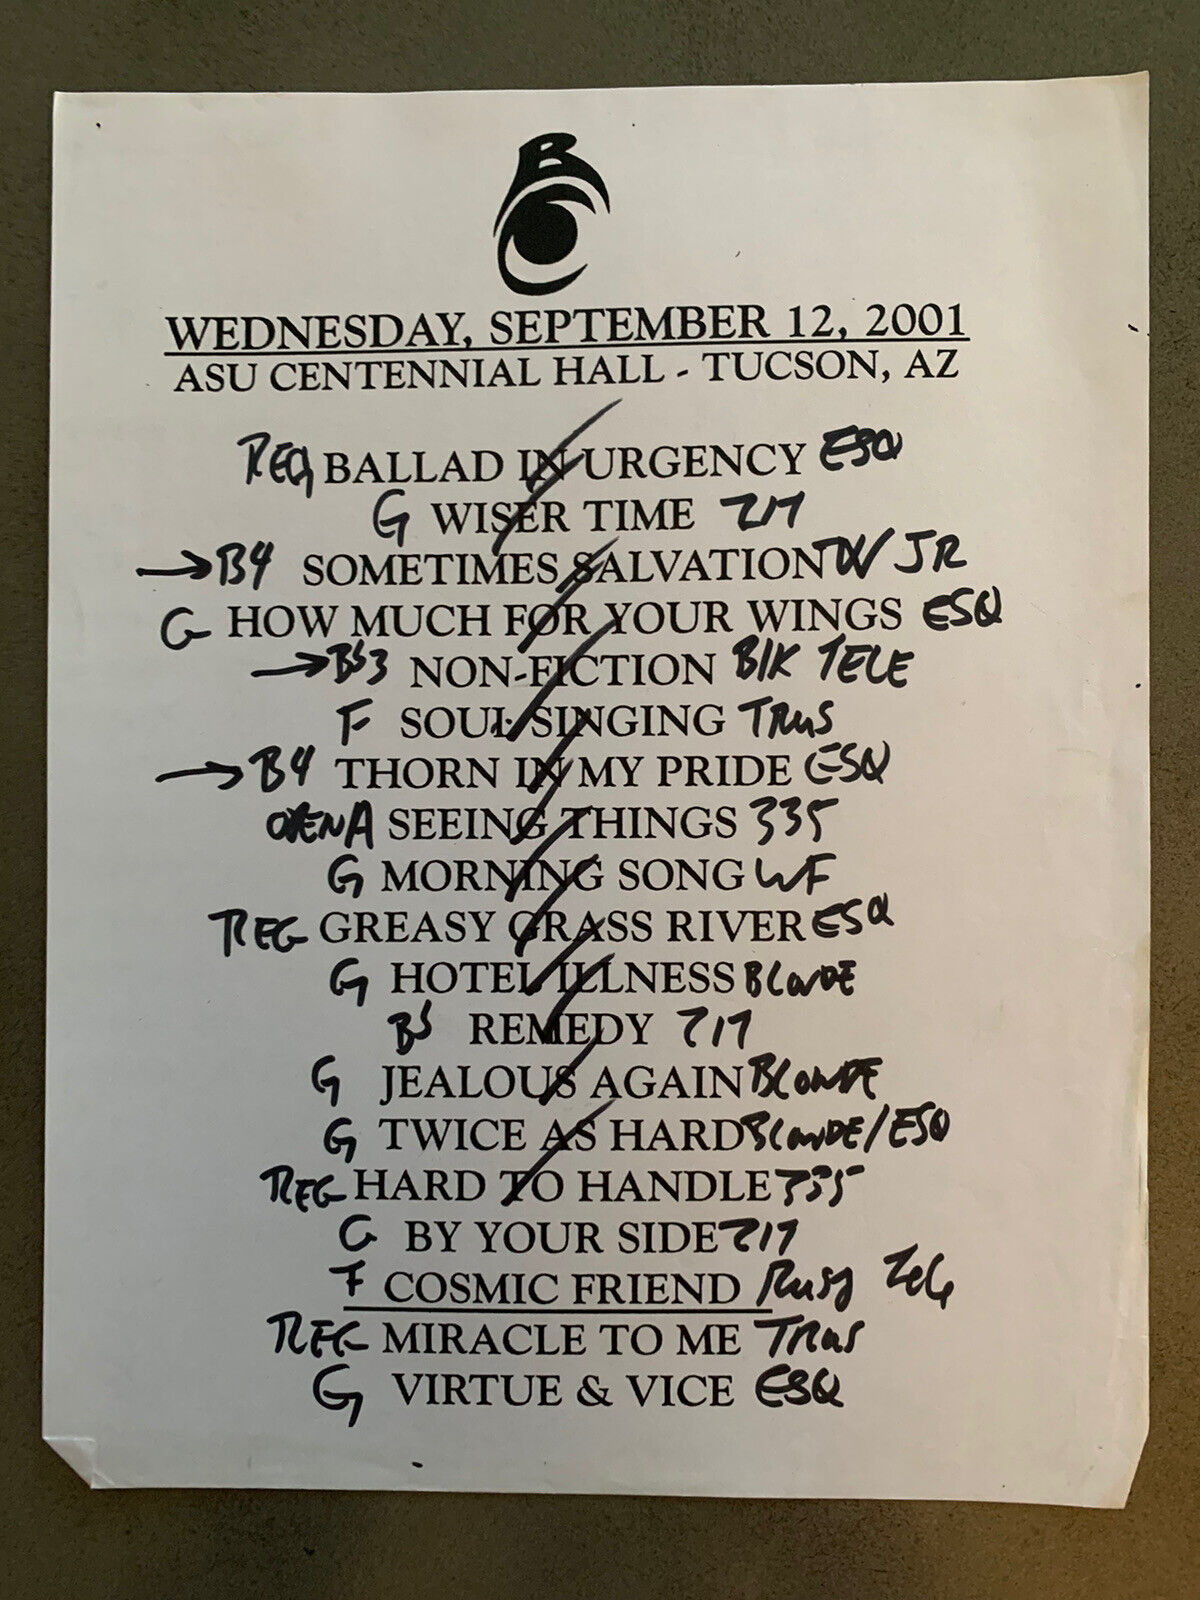 B
C
WEDNESDAY, SEPTEMBER 12, 2001
ASU CENTENNIAL HALL - TUCSON, AZ
REG BALLAD IN URGENCY ESQ
G WISER TIME 717
→B4 SOMETIMES SALVATION JR
G HOW MUCH FOR YOUR WINGS ESQ
→BS3 NON-FICTION BLK TELE
F SOUL SINGING TRUS
→B4 THORN IN MY PRIDE ESQ
OPEN A SEEING THINGS 335
G MORNING SONG WF
REG GREASY GRASS RIVER ESQ
G HOTEL ILLNESS BLONDE
BS REMEDY 717
G JEALOUS AGAIN BLONDE
G TWICE AS HARD BLONDE/ESQ
REG HARD TO HANDLE 335
G BY YOUR SIDE 717
F COSMIC FRIEND
REG MIRACLE TO ME TRUS
G VIRTUE & VICE ESQ